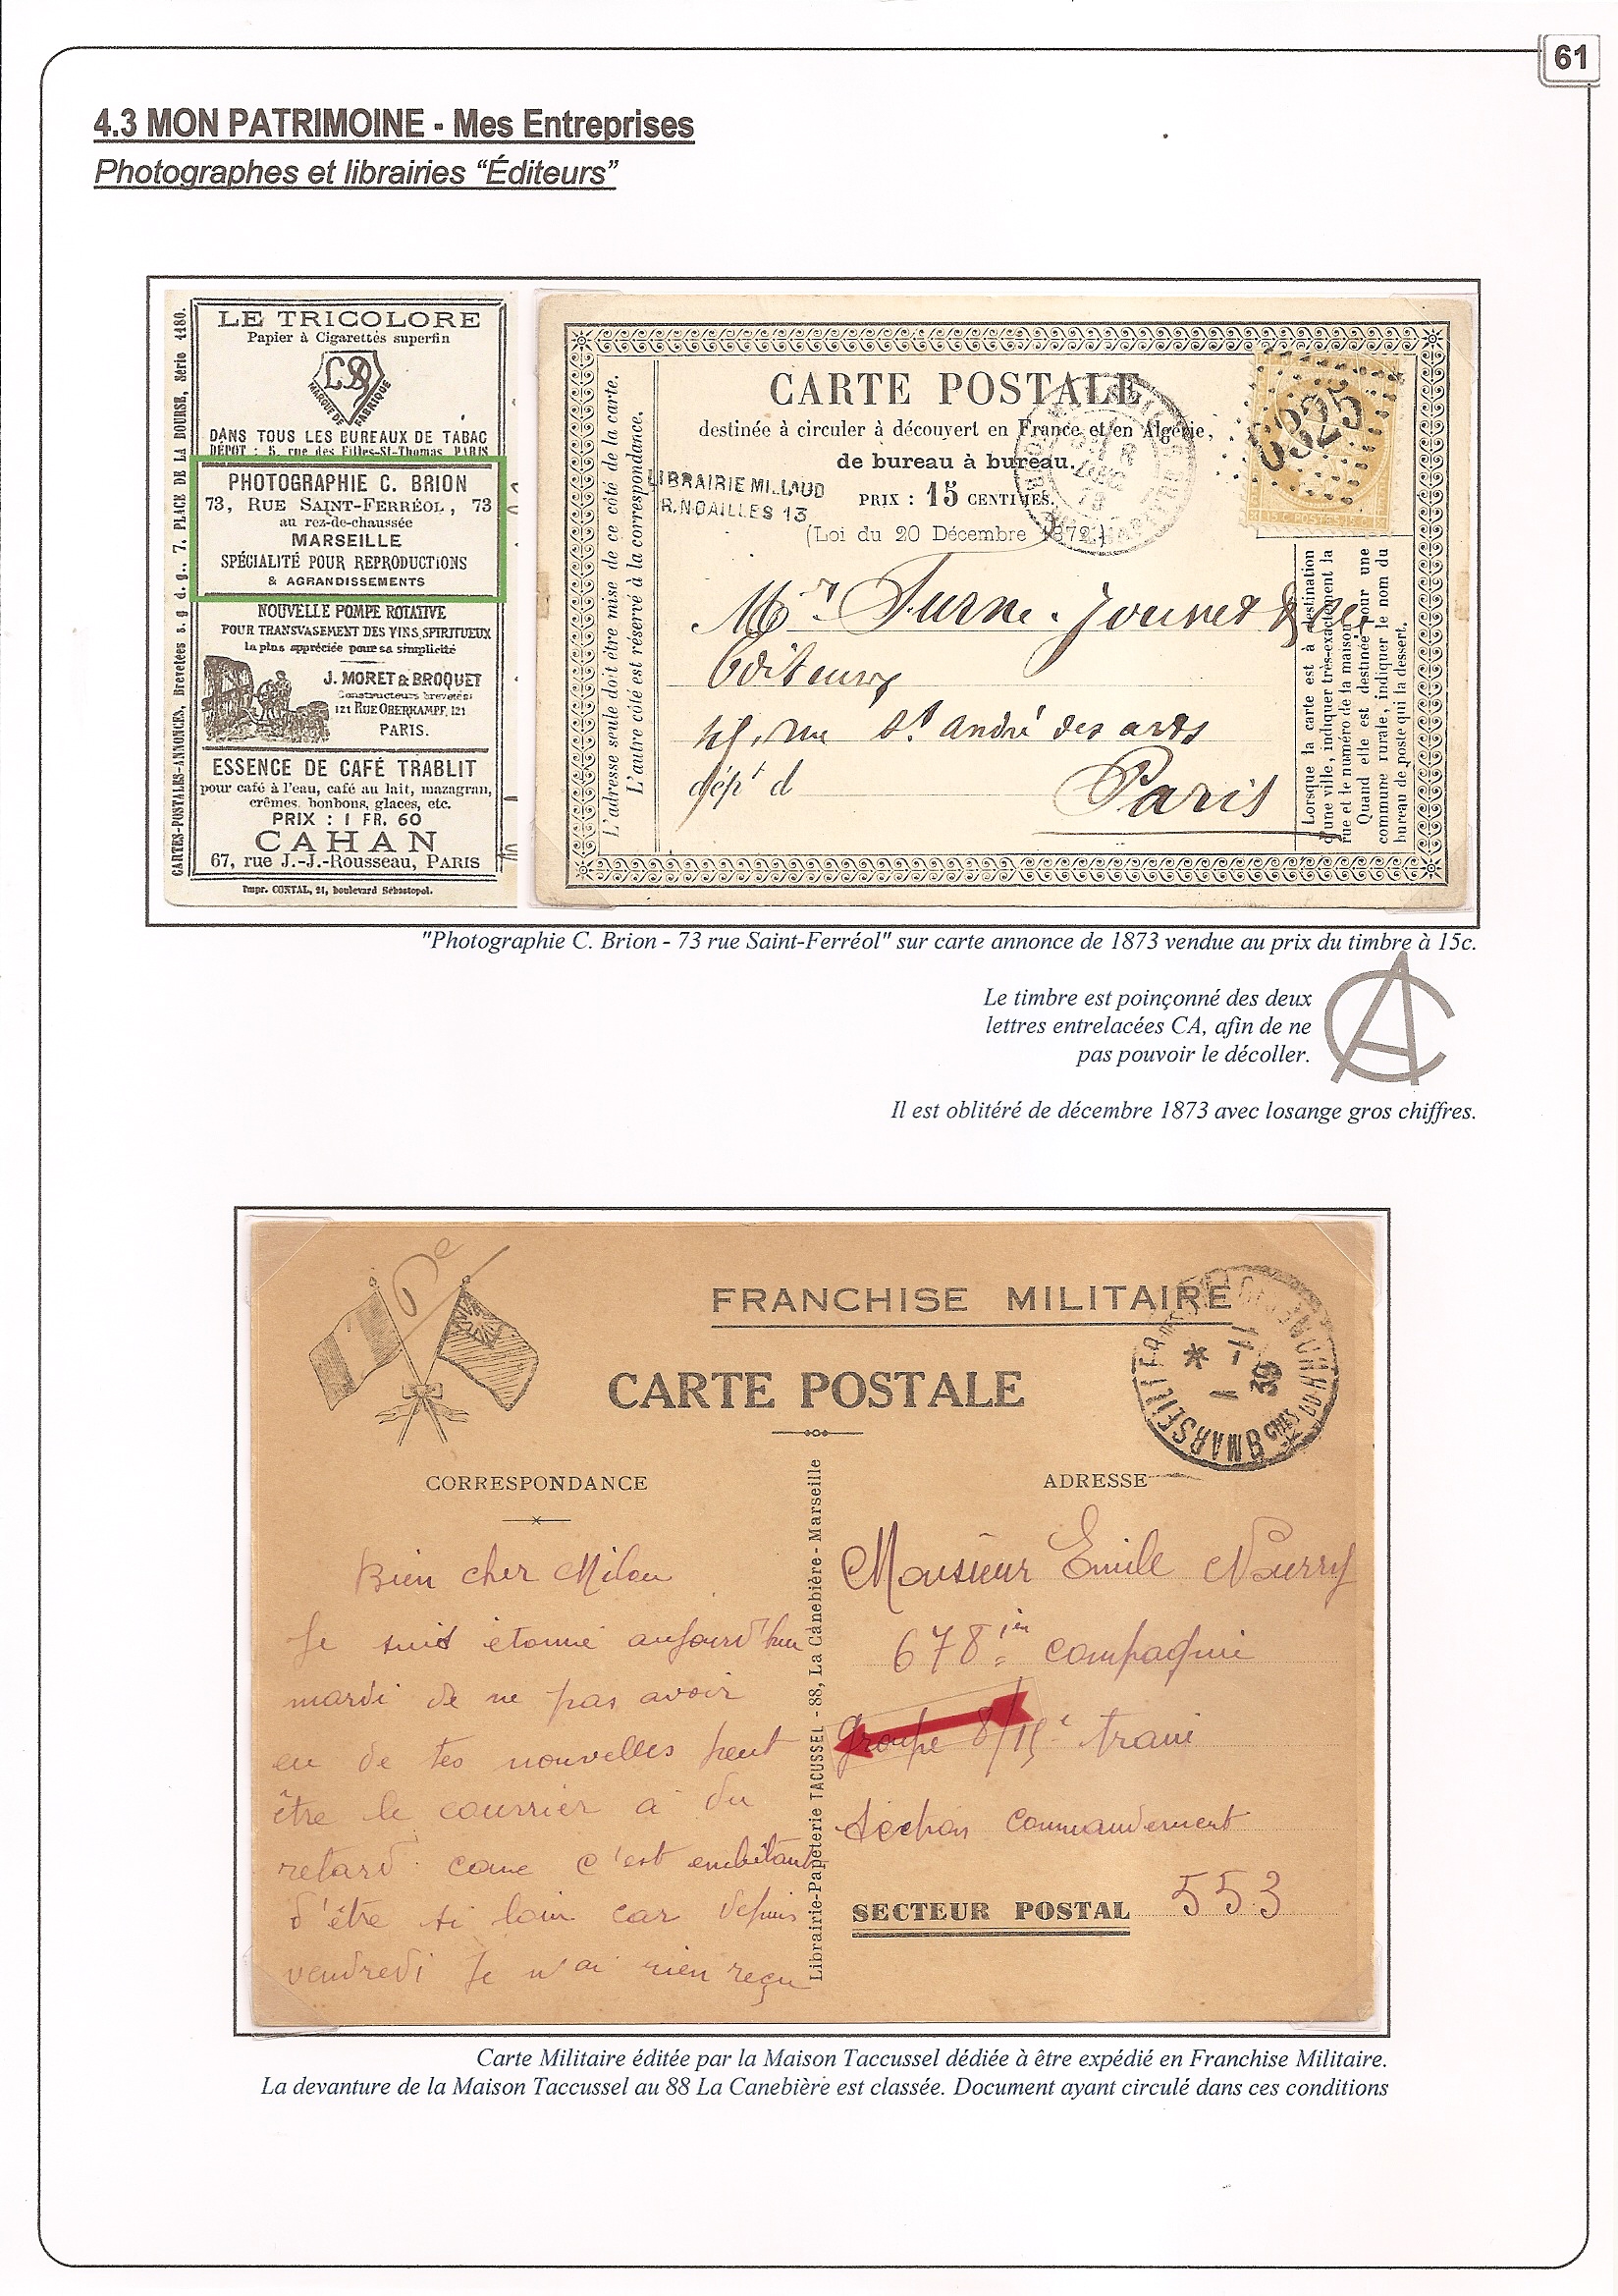 61
4.3 MON PATRIMOINE - Mes Entreprises
Photographes et librairies “Éditeurs”
CARTES-POSTALES-ANNONCES, Brevetées s. g. d. g., 7, PLACE DE LA BOURSE, Série 1180.
LE TRICOLORE
Papier à Cigarettes superfin
MARQUE DE FABRIQUE
DANS TOUS LES BUREAUX DE TABAC
DÉPOT : 5, rue des Filles-St-Thomas, PARIS
PHOTOGRAPHIE C. BRION
73, RUE SAINT-FERRÉOL, 73
au rez-de-chaussée
MARSEILLE
SPÉCIALITÉ POUR REPRODUCTIONS
& AGRANDISSEMENTS
NOUVELLE POMPE ROTATIVE
POUR TRANSVASEMENT DES VINS, SPIRITUEUX
la plus appréciée pour sa simplicité
J. MORET & BROQUET
Constructeurs brevetés
121 RUE OBERKAMPF, 121
PARIS.
ESSENCE DE CAFÉ TRABLIT
pour café à l'eau, café au lait, mazagran,
crêmes, bonbons, glaces, etc.
PRIX : 1 FR. 60
CAHAN
67, rue J.-J.-Rousseau, PARIS
Impr. CONTAL, 21, boulevard Sébastopol.
L'adresse seule doit être mise de ce côté de la carte.
L'autre côté est réservé à la correspondance.
CARTE POSTALE
destinée à circuler à découvert en France et en Algérie,
de bureau à bureau.
LIBRAIRIE MILLAUD
R. NOAILLES 13
PRIX : 15 CENTIMES.
(Loi du 20 Décembre 1872.)
6325
Mrs Furne. Jouvet & Cie
Editeurs
45, rue St André des arts
dépt d
Paris
Lorsque la carte est à destination
d'une ville, indiquer très-exactement la
rue et le numéro de la maison.
Quand elle est destinée pour une
commune rurale, indiquer le nom du
bureau de poste qui la dessert.
"Photographie C. Brion - 73 rue Saint-Ferréol" sur carte annonce de 1873 vendue au prix du timbre à 15c.
Le timbre est poinçonné des deux
lettres entrelacées CA, afin de ne
pas pouvoir le décoller.
CA
Il est oblitéré de décembre 1873 avec losange gros chiffres.
FRANCHISE MILITAIRE
CARTE POSTALE
MARSEILLE
BCHES DU RHONE
1 -11
39
CORRESPONDANCE
ADRESSE
Bien cher Milou
Je suis étonné aujourd'hui
mardi de ne pas avoir
eu de tes nouvelles peut
être le courrier a du
retard come c'est embêtant
d'être si loin car depuis
vendredi Je n'ai rien reçu
Librairie-Papeterie TACUSSEL - 88, La Canebière - Marseille
Monsieur Emile Nourry
678 ièm compagnie
Groupe 8/15e train
Section commandement
SECTEUR POSTAL 553
Carte Militaire éditée par la Maison Taccussel dédiée à être expédié en Franchise Militaire.
La devanture de la Maison Taccussel au 88 La Canebière est classée. Document ayant circulé dans ces conditions